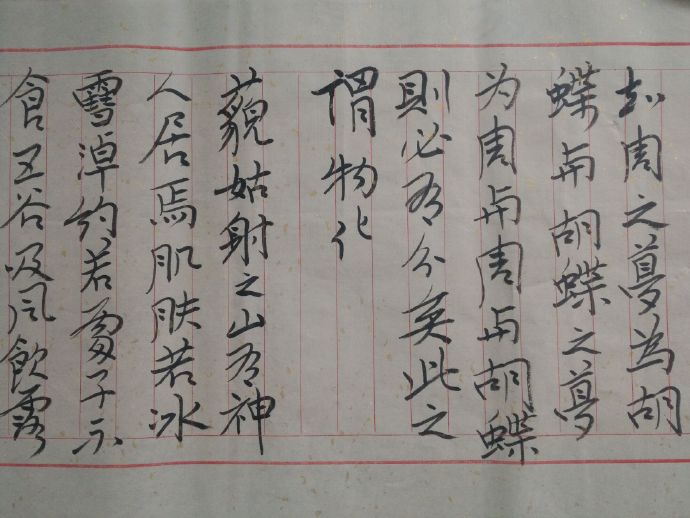 知周之夢為胡
蝶与胡蝶之夢
为周与周与胡蝶
則必有分矣此之
謂物化
藐姑射之山有神
人居焉肌肤若冰
雪淖约若處子不
食五谷吸风飲露